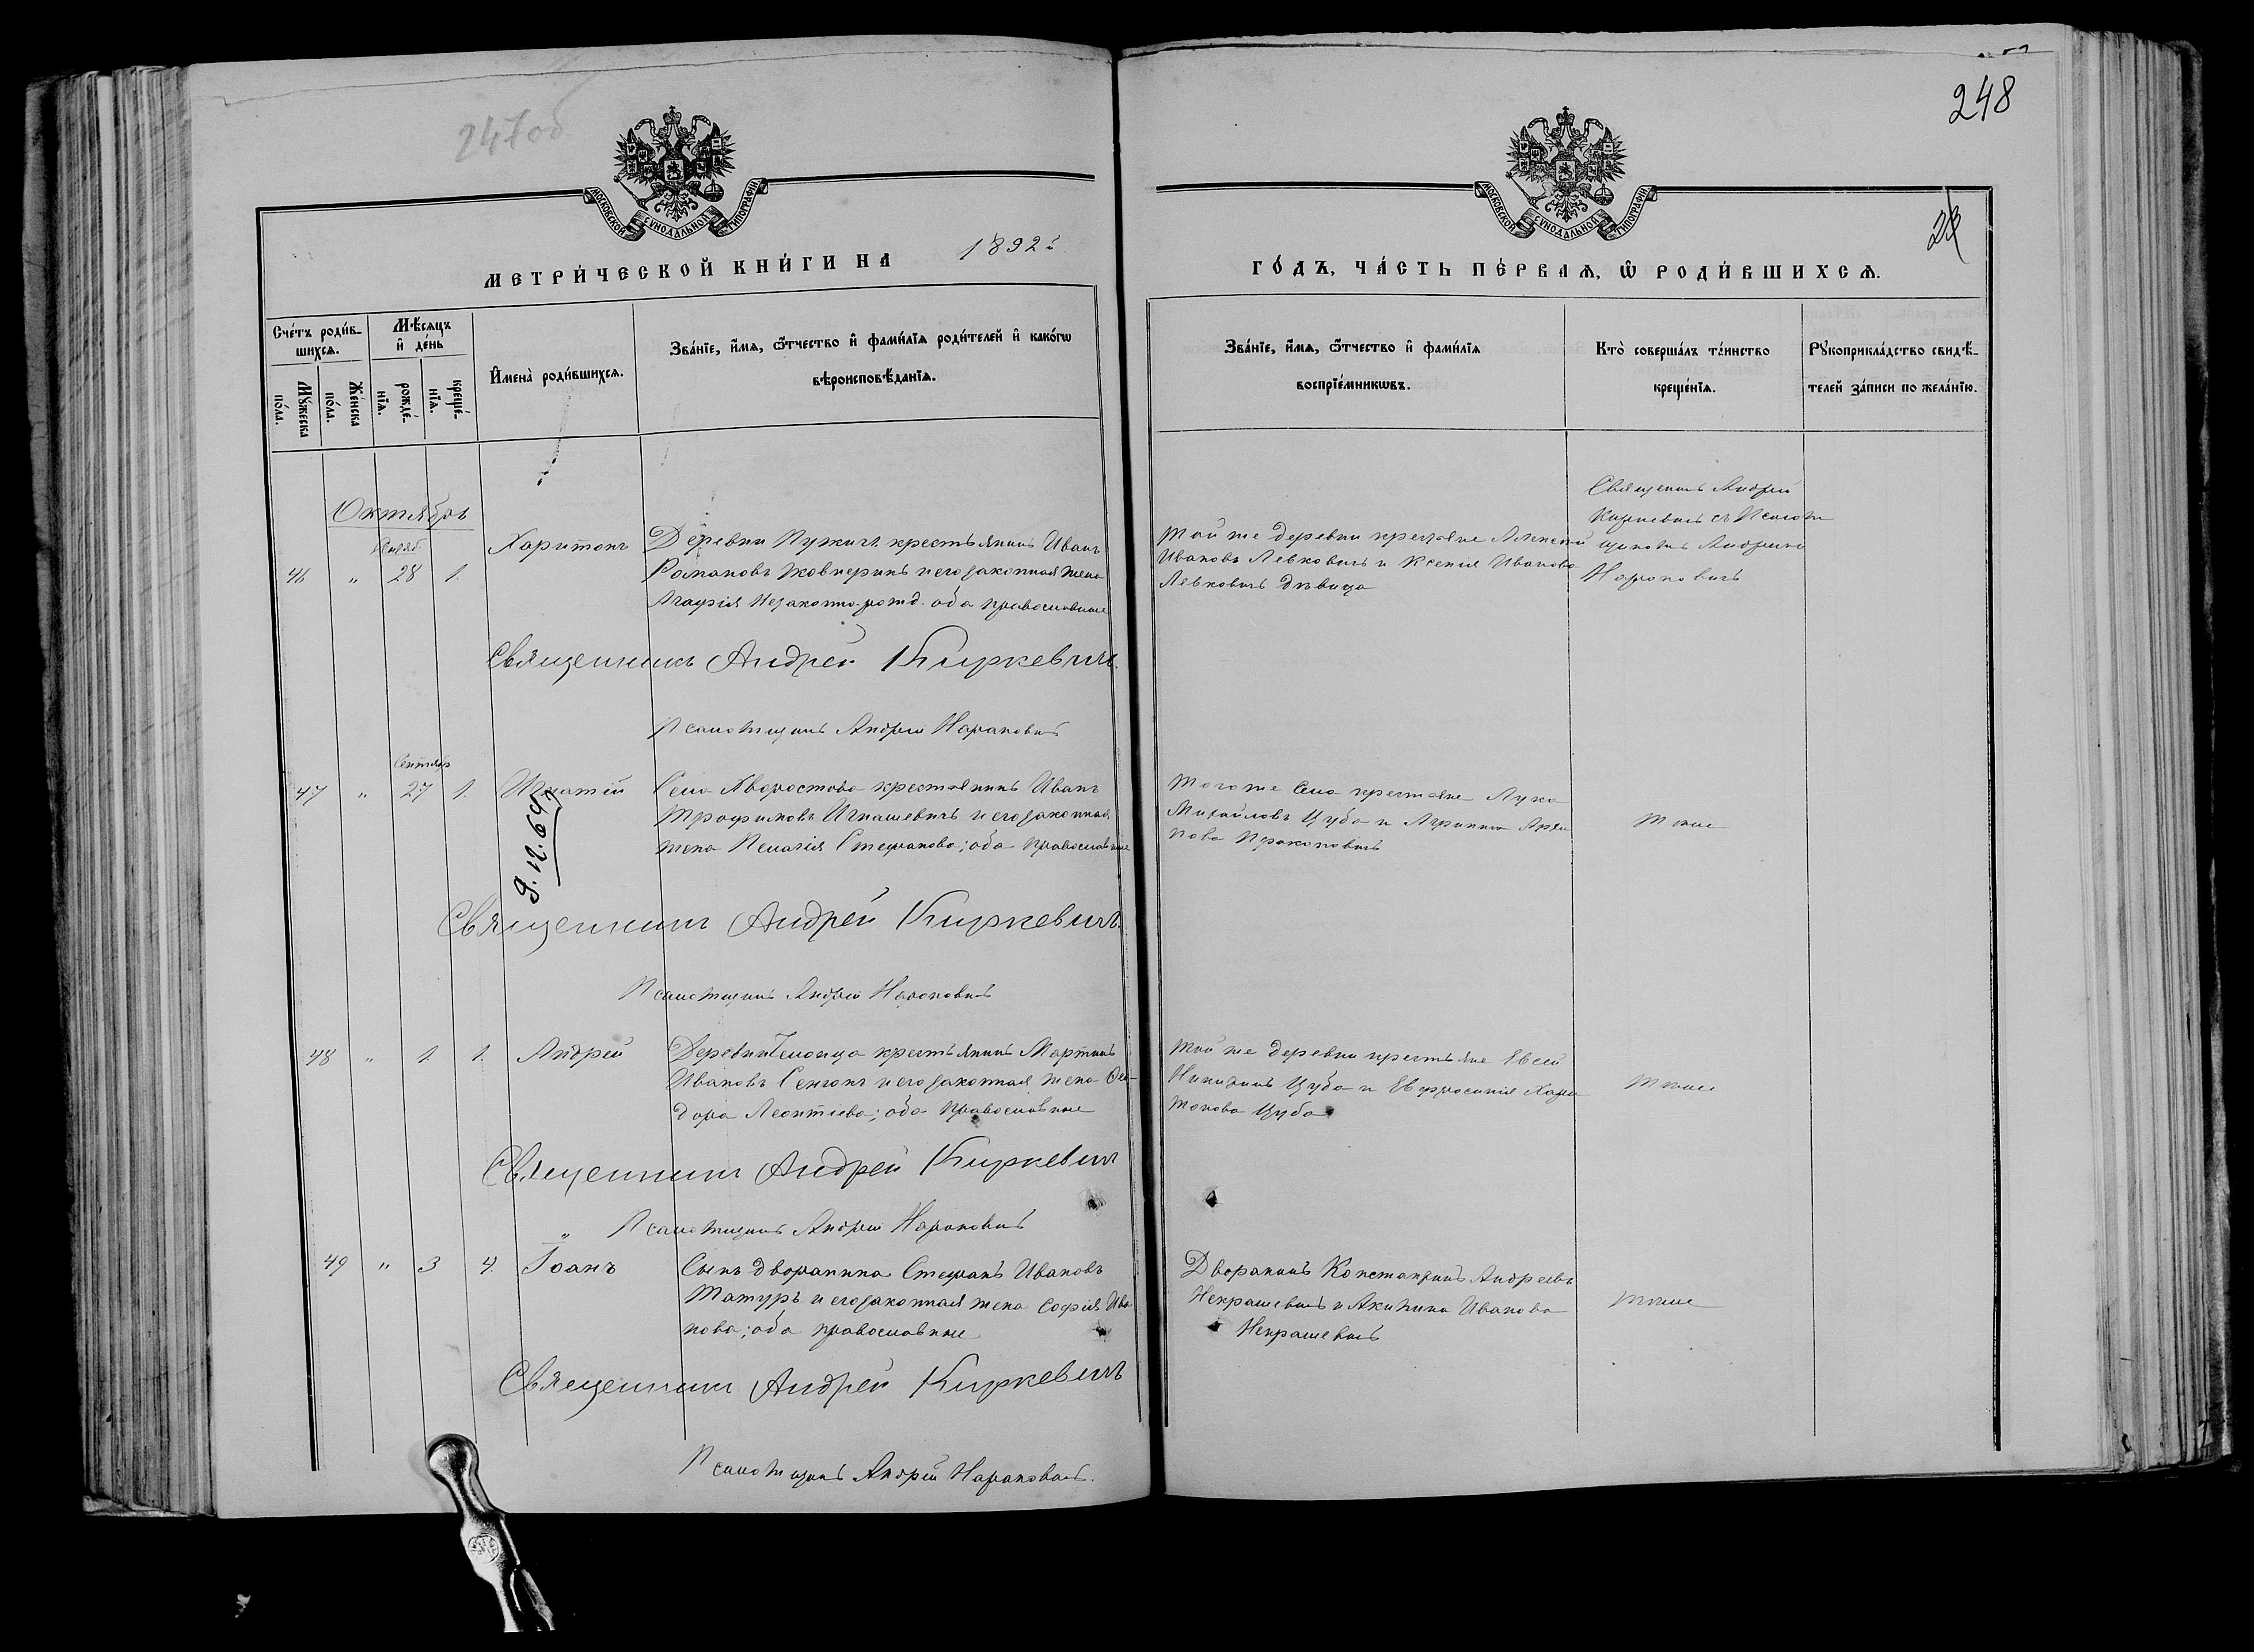 247об
248
23
МОСКОВСКОЙ СУНОДАЛЬНОЙ ТИПОГРАФІИ
МОСКОВСКОЙ СУНОДАЛЬНОЙ ТИПОГРАФІИ
МЕТРИ́ЧЕСКОЙ КНИ́ГИ НА 1892 г.
ГО́ДЪ, ЧА́СТЬ ПЕ́РВАѦ, Ѿ РОДИ́ВШИХСѦ.
Сче́тъ роди́в-
шихсѧ.
Мꙋжеска по́ла.
Же́нска по́ла.
Мѣ́сѧцъ и҆ де́нь
рожде́-нїѧ.
креще́-нїѧ.
И҆мена̀ роди́вшихсѧ.
Зва́нїе, и҆́мѧ, ѻ҆́тчество и҆ фами́лїѧ роди́телей и҆ како́гѡ
вѣроисповѣ́данїѧ.
Зва́нїе, и҆́мѧ, ѻ҆́тчество и҆ фами́лїѧ
воспрїе́мникѡвъ.
Кто̀ соверша́лъ та́инство
креще́нїѧ.
Рꙋкоприкла́дство свидѣ́-
телей за́писи по жела́нїю.
Октябрь
46 " 28 1. Харитонъ Деревни Пужичъ крестьянинъ Иванъ
Романовъ Жовнерикъ и его законная жена
Агафія Незаконно-рожд. оба православные
Той же деревни крестьяне Алексей
Ивановъ Левковичъ и Ксенія Иванова
Левковичъ девица
Священникъ Андрей
Киркевичъ съ Псаломщикомъ Андреемъ
Священникъ Андрей Киркевичъ.
Псаломщикъ Андрей
Сентябр
47 " 27 1. Игнатій Село Хворостово крестьянинъ Иванъ
Трофимовъ Игнашевичъ и его законная
жена Пелагія Стефанова; оба православные
9.12.64г
Того же села крестьяне Лука
Михайловъ Цуба и Агрипина
Прокоповичъ
Тоже
Священникъ Андрей Киркевичъ.
Псаломщикъ Андрей
48 " 1. 1. Андрей Деревни крестьянинъ Мартинъ
Ивановъ и его законная жена Ѳео-
дора Леонтіева; оба православные
Той же деревни крестьяне Евсей
Никитинъ Цуба и Евфросинія Хари
тонова Цуба
Тоже
Священникъ Андрей Киркевичъ
Псаломщикъ Андрей
49 " 3 4. Іоанъ Сынъ дворянина Стефанъ Ивановъ
Татуръ и его законная жена Софія Ива
нова; оба православные
Дворянинъ Константинъ Андреевъ
Некрашевичъ и Акилина Иванова
Некрашевичъ
Тоже
Священникъ Андрей Киркевичъ
Псаломщикъ Андрей